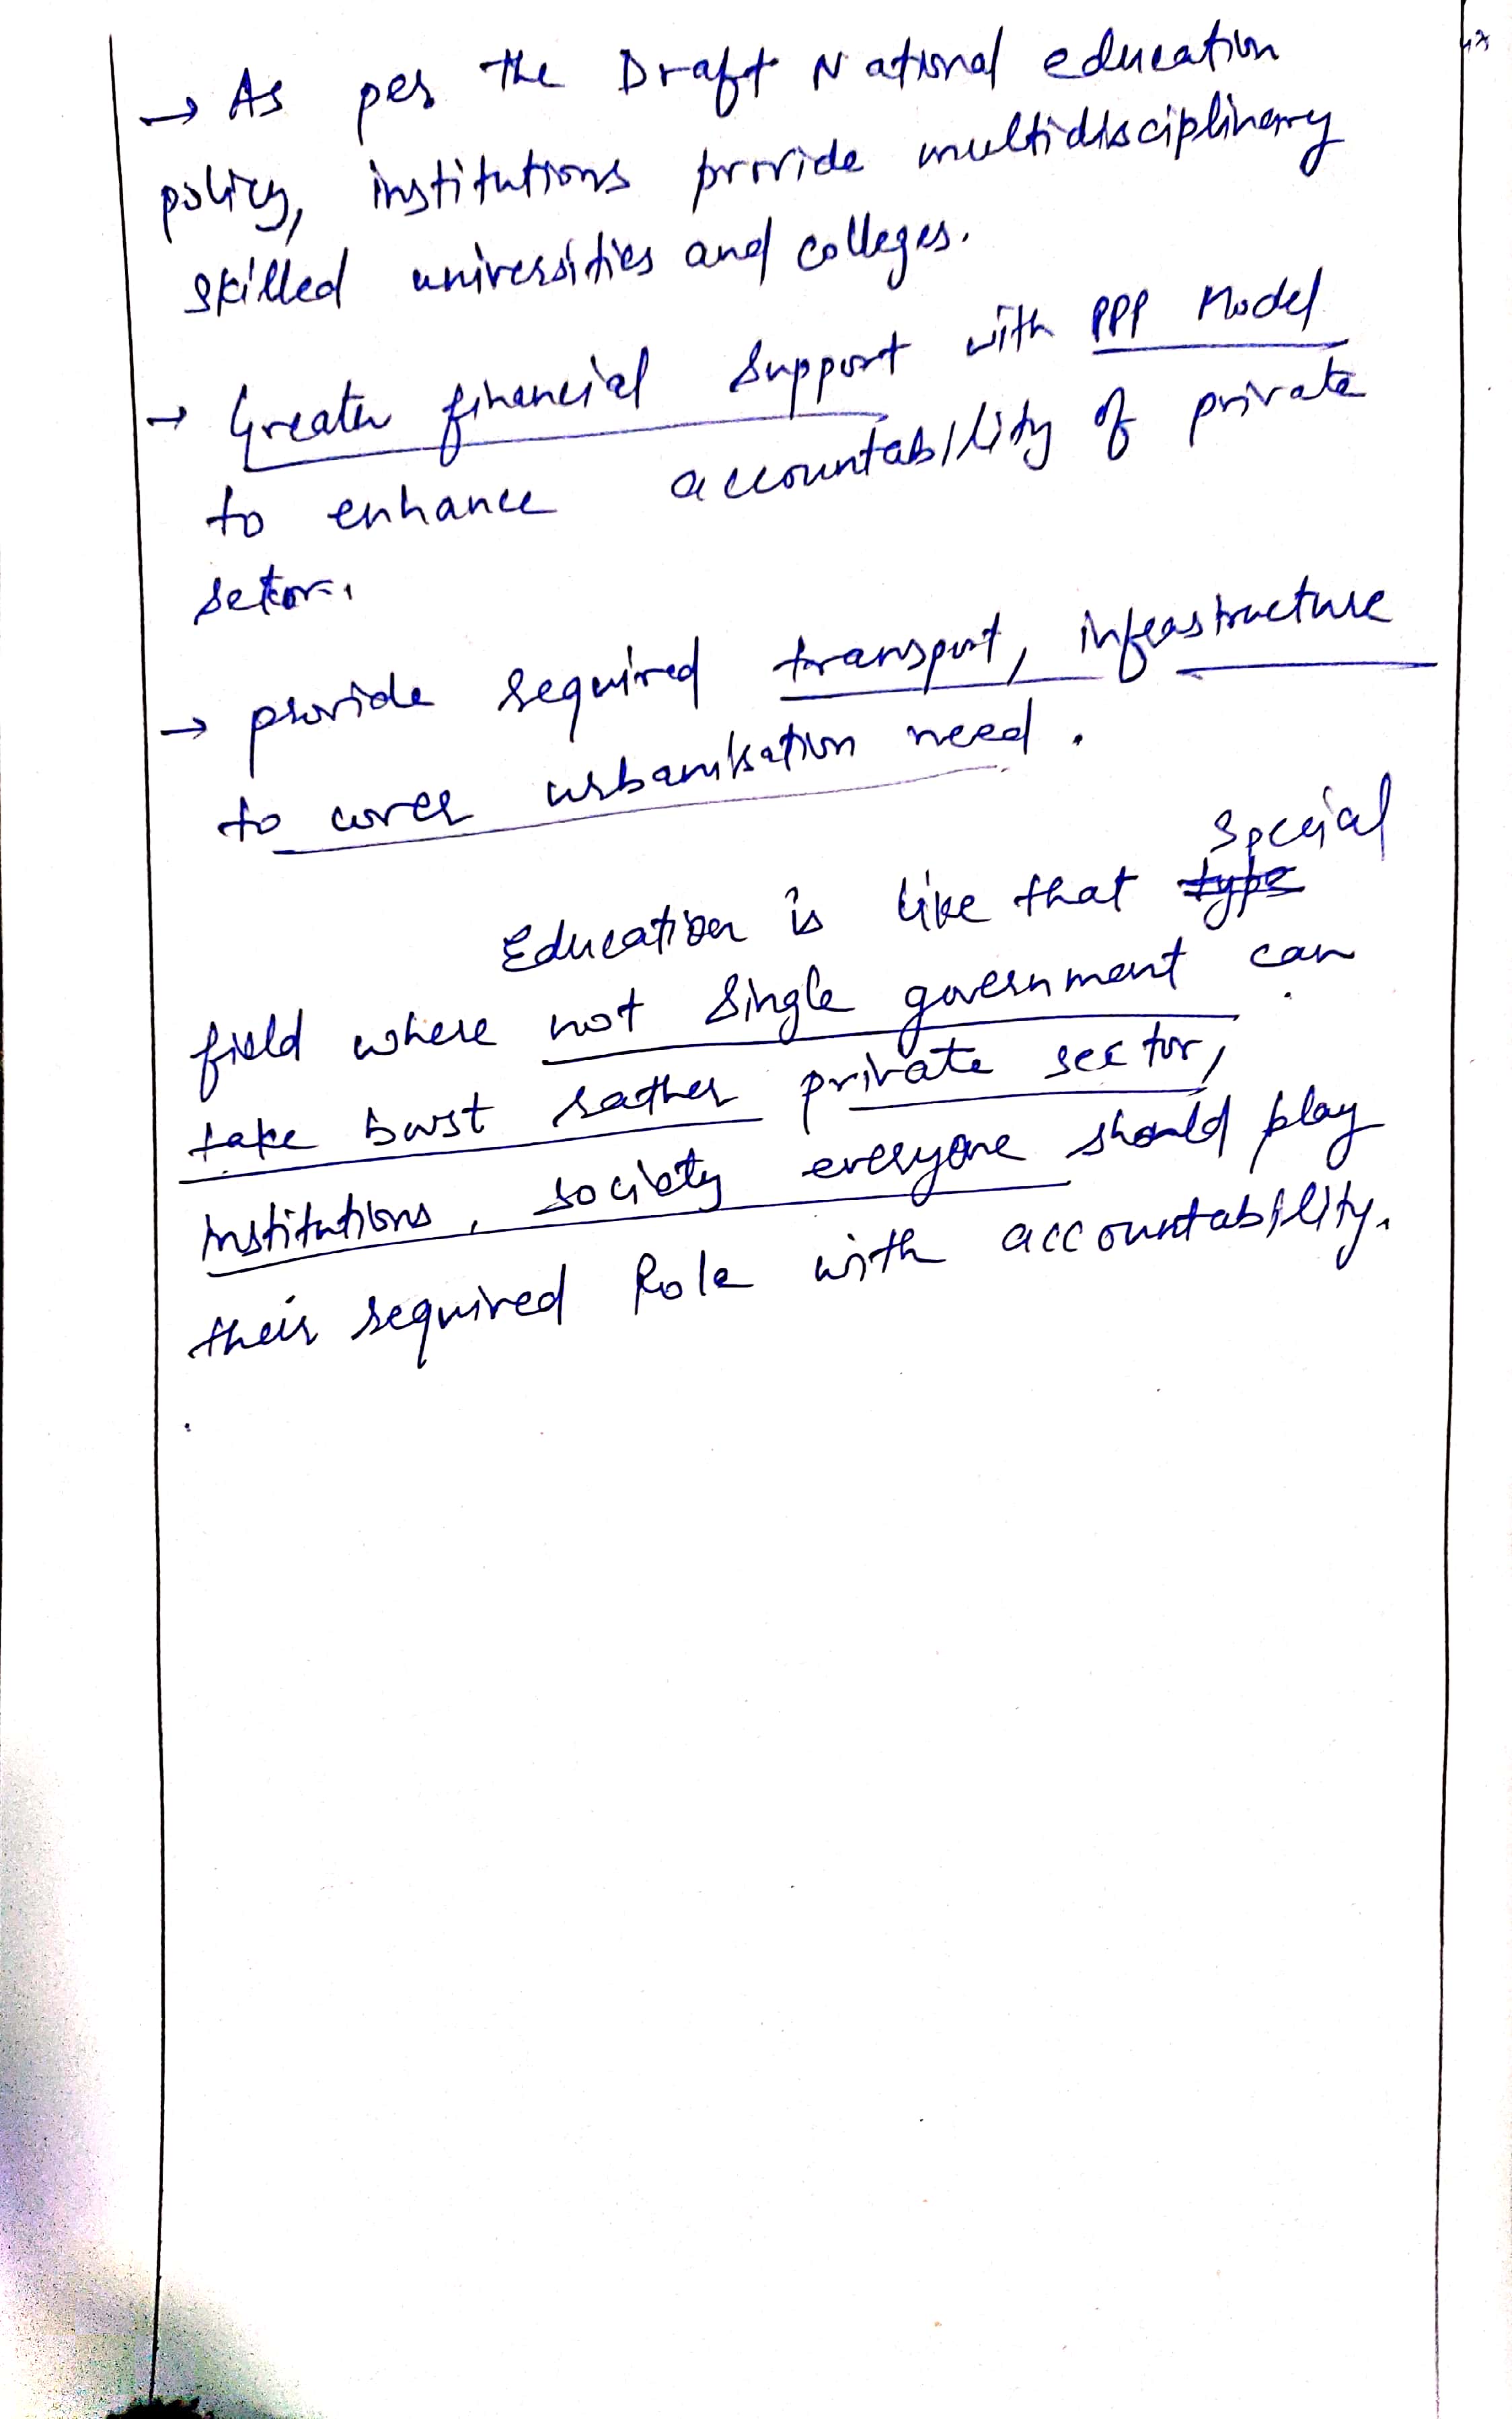 → As per the Draft National education
policy, institutions provide multidisciplinary
skilled universities and colleges.
→ Greater financial support with PPP Model
to enhance accountability of private
setor.
→ provide required transport, infrastructure
to cover urbanisation need.
special
Education is like that type
field where not single government can
take burst rather private sector,
institutions, society everyone should play
their required Role with accountability.